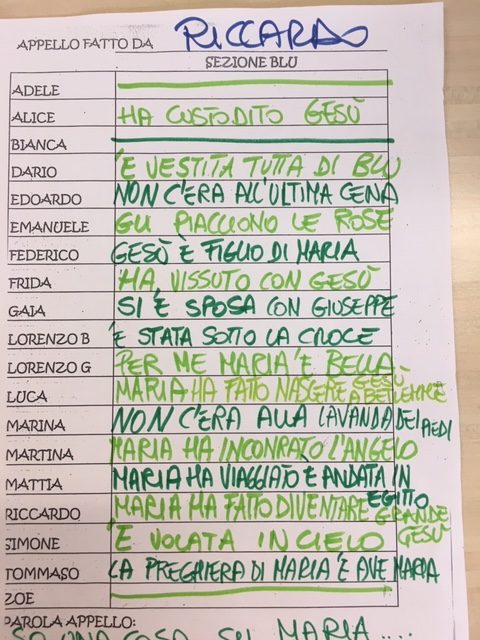 APPELLO FATTO DA RICCARDO
SEZIONE BLU
ADELE
ALICE HA CUSTODITO GESÙ
BIANCA
DARIO È VESTITA TUTTA DI BLU
EDOARDO NON C'ERA ALL'ULTIMA CENA
EMANUELE GLI PIACCIONO LE ROSE
FEDERICO GESÙ È FIGLIO DI MARIA
FRIDA HA VISSUTO CON GESÙ
GAIA SI È SPOSA CON GIUSEPPE
LORENZO B È STATA SOTTO LA CROCE
LORENZO G PER ME MARIA È BELLA
LUCA MARIA HA FATTO NASCERE GESÙ A BETLEMME
MARINA NON C'ERA ALLA LAVANDA DEI PIEDI
MARTINA MARIA HA INCONRATO L'ANGELO
MATTIA MARIA HA VIAGGIATO È ANDATA IN EGITTO
RICCARDO MARIA HA FATTO DIVENTARE GRANDE GESÙ
SIMONE È VOLATA IN CIELO
TOMMASO LA PREGHIERA DI MARIA È AVE MARIA
ZOE
PAROLA APPELLO:
UNA COSA SU MARIA....